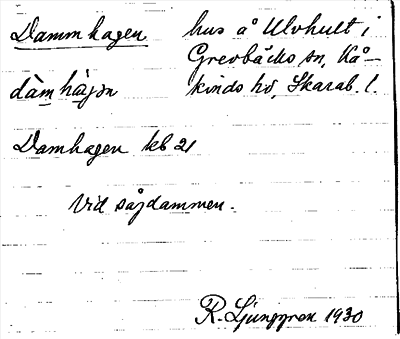 Dammhagen hus å Ulvhult i
Grevbäcks sn, Kå-
dàm hàjən kinds hd, Skarab. l.
Damhagen kb 21
Vid sågdammen.
R. Ljunggren 1930